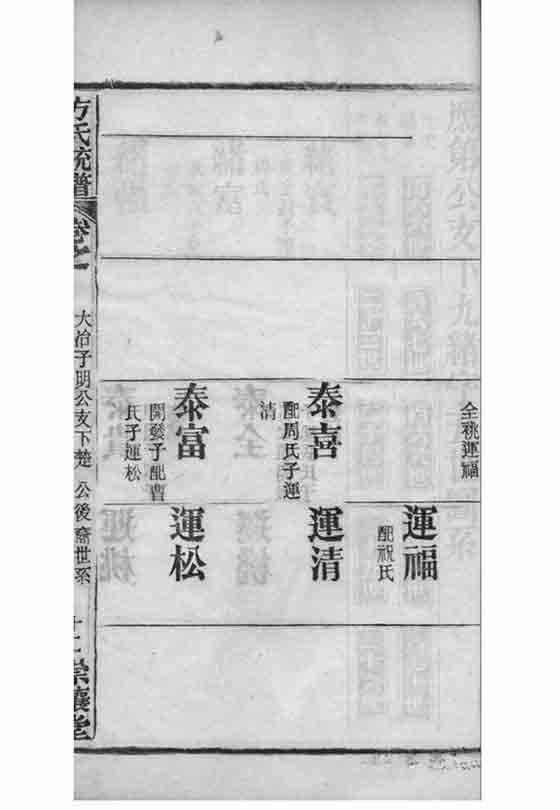 仝祧運福
運福
配祝氏
泰喜
配周氏子運
清
運清
泰富
開發子配曹
氏子運松
運松
方氏統譜
卷之
大冶子明公支下楚 公後裔世系
十二